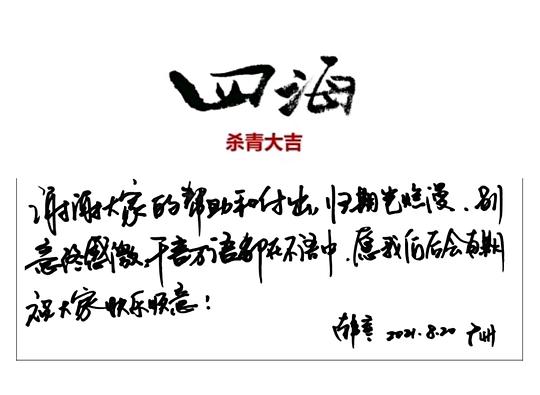 四海
杀青大吉
谢谢大家的帮助和付出,归期光临漫、别
意终感激,千言万语都在不语中,愿我们后会有期
祝大家快乐顺意!
韩寒 2021.8.20 广州